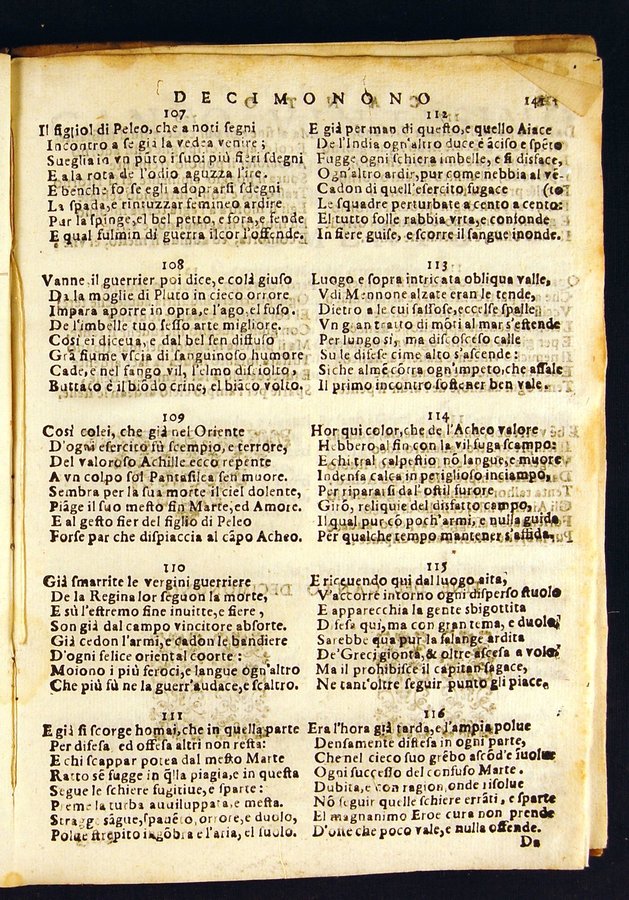 DECIMONONO
107
Il figliol di Peleo, che a noti segni
Incontro a se già la vedea venire;
Sueglia in vn pūto i suoi più fieri sdegni
E a la rota de l'odio aguzza l'ire.
E benche so se egli adoprarsi sdegni
La spada, e rintuzzar femineo ardire
Pur la spinge, el bel petto, e fora, e fende
E qual fulmin di guerra il cor l'offende.
108
Vanne, il guerrier poi dice, e colà giuso
Da la moglie di Pluto in cieco orrore
Impara aporre in opra, e l'ago, el fuso.
De l'imbelle tuo sesso arte migliore.
Cosi ei diceua, e dal bel sen diffuso
Grā fiume vscia di sanguinoso humore
Cade, e nel fango vil, l'elmo disciolto,
Buttato è il biōdo crine, el biāco volto.
109
Così colei, che già nel Oriente
D'ogni esercito fù scempio, e terrore,
Del valoroso Achille ecco repente
A vn colpo sol Pantasilea sen muore.
Sembra per la sua morte il ciel dolente,
Piāge il suo mesto fin Marte, ed Amore.
E al gesto fier del figlio di Peleo
Forse par che dispiaccia al cāpo Acheo.
110
Già smarrite le vergini guerriere
De la Regina lor seguon la morte,
E sù l'estremo fine inuitte, e fiere,
Son già dal campo vincitore absorte.
Già cedon l'armi, e cadon le bandiere
D'ogni felice oriental coorte:
Moiono i più feroci, e langue ogn'altro
Che più fù ne la guerr'audace, e scaltro.
111
E già si scorge homai, che in quella parte
Per difesa ed offesa altri non resta:
E chi scappar potea dal mesto Marte
Ratto sē fugge in q̄lla piagia, e in questa
Segue le schiere fugitiue, e sparte:
Preme la turba auuiluppata, e mesta.
Strage sāgue, spauēto, orrore, e duolo,
Polue strepito ingōbra e l'aria, el suolo.
112
E già per man di questo, e quello Aiace
De l'India ogn'altro duce è āciso e spēto
Fugge ogni schiera imbelle, e si disface,
Ogn'altro ardir, pur come nebbia al vē-
Cadon di quell'esercito fugace (to
Le squadre perturbate a cento a cento:
El tutto folle rabbia vrta, e confonde
In fiere guise, e scorre il sangue inonde.
113
Luogo e sopra intricata obliqua valle,
V di Mennone alzate eran le tende,
Dietro a le cui sassose, eccelse spalle
Vn gran tratto di mōti al mar s'estende
Per lungo sì, ma discosceso calle
Su le difese cime alto s'ascende:
Siche almē cōtra ogn'impeto, che assale
Il primo incontro sostener ben vale.
114
Hor qui color, che de l'Acheo valore
Hebbero al fin con la vil fuga scampo:
E chi tral calpestio nō langue, e muore
Indensa calca in periglioso inciampo,
Per ripararsi dal'ostil furore
Girō, reliquie del disfatto campo,
Il qual pur cō poch'armi, e nulla guida
Per qualche tempo mantener s'affida.
115
E riceuendo qui dal luogo aita,
V'accorre intorno ogni disperso stuolo
E apparecchia la gente sbigottita
Difesa qui, ma con gran tema, e duolo,
Sarebbe qua pur la falange ardita
De'Greci gionta, & oltre ascesa a volo,
Ma il prohibisce il capitan sagace,
Ne tant'oltre seguir punto gli piace,
116
Era l'hora già tarda, e l'ampia polue
Densamente distesa in ogni parte,
Che nel cieco suo grēbo ascōd'e iuolue
Ogni successo del confuso Marte.
Dubita, e con ragion, onde risolue
Nō seguir quelle schiere errāti, e sparte
El magnanimo Eroe cura non prende
D'oste che poco vale, e nulla offende.
Da